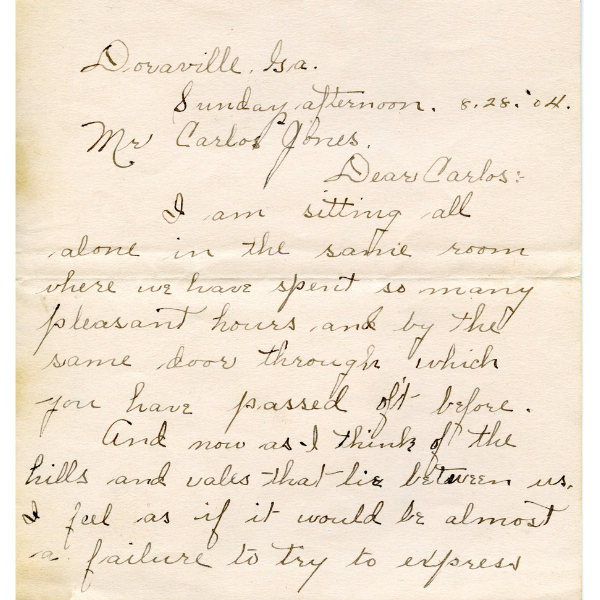 Doraville, Ga.
Sunday afternoon. 8.28.'04.
Mr Carlos Jones.
Dear Carlos:-
I am sitting all
alone in the same room
where we have spent so many
pleasant hours and by the
same door through which
you have passed oft before.
And now as I think of the
hills and vales that lie between us,
I feel as if it would be almost
a failure to try to express